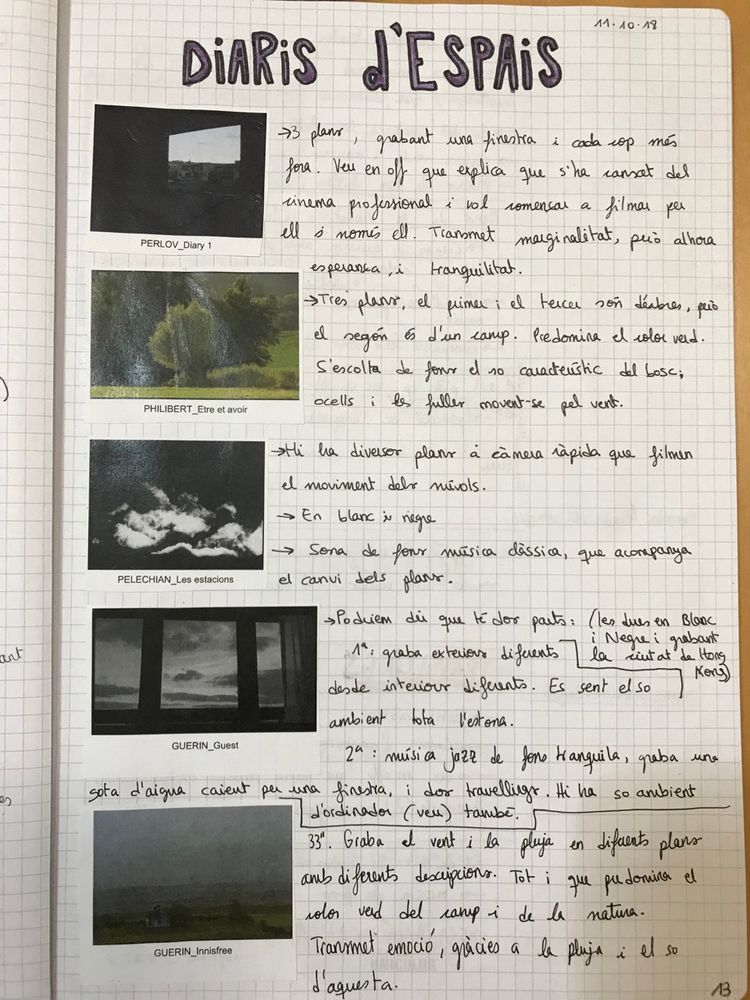 11·10·18
DIARIS d'ESPAIS
→3 plans, grabant una finestra i cada cop més
fora. Veu en off que explica que s'ha cansat del
cinema professional i vol començar a filmar per
ell i només ell. Transmet marginalitat, però alhora
esperança, i tranquilitat.
PERLOV_Diary 1
→Tres plans, el primer i el tercer són d'arbres, però
el segón és d'un camp. Predomina el color verd.
S'escolta de fons el so característic del bosc;
ocells i les fulles movent-se pel vent.
PHILIBERT_Etre et avoir
→Hi ha diversos plans a càmera ràpida que filmen
el moviment dels núvols.
→ En blanc i negre
→ Sona de fons música clàssica, que acompanya
el canvi dels plans.
PELECHIAN_Les estacions
→Podriem dir que té dos parts: (les dues en Blanc
i Negre i grabant
la ciutat de Hong
Kong)
1ª: graba exteriors diferents
desde interiors diferents. Es sent el so
ambient tota l'estona.
GUERIN_Guest
2ª: música jazz de fons tranquila, graba una
gota d'aigua caient per una finestra, i dos travellings. Hi ha so ambient
d'ordinador (veu) també.
33". Graba el vent i la pluja en diferents plans
amb diferents descripcions. Tot i que predomina el
color verd del camp i de la natura.
Transmet emoció, gràcies a la pluja i el so
d'aquesta.
GUERIN_Innisfree
13
ant
es